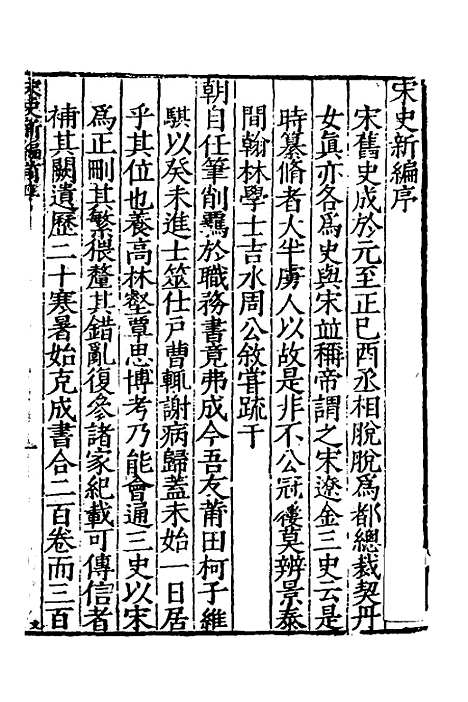 宋史新編序
宋舊史成於元至正己酉丞相脫脫爲都總裁契丹
女眞亦各爲史與宋並稱帝謂之宋遼金三史云是
時纂脩者大半虜人以故是非不公冠屨莫辨景泰
間翰林學士吉水周公敘嘗疏于
朝自任筆削羈於職務書竟弗成今吾友莆田柯子維
騏以癸未進士筮仕戶曹輒謝病歸蓋未始一日居
乎其位也養高林壑覃思博考乃能會通三史以宋
爲正刪其繁猥釐其錯亂復參諸家紀載可傳信者
補其闕遺歷二十寒暑始克成書合二百卷而三百
宋史新編前序
一